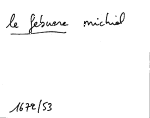 le febure michiel
1672/53